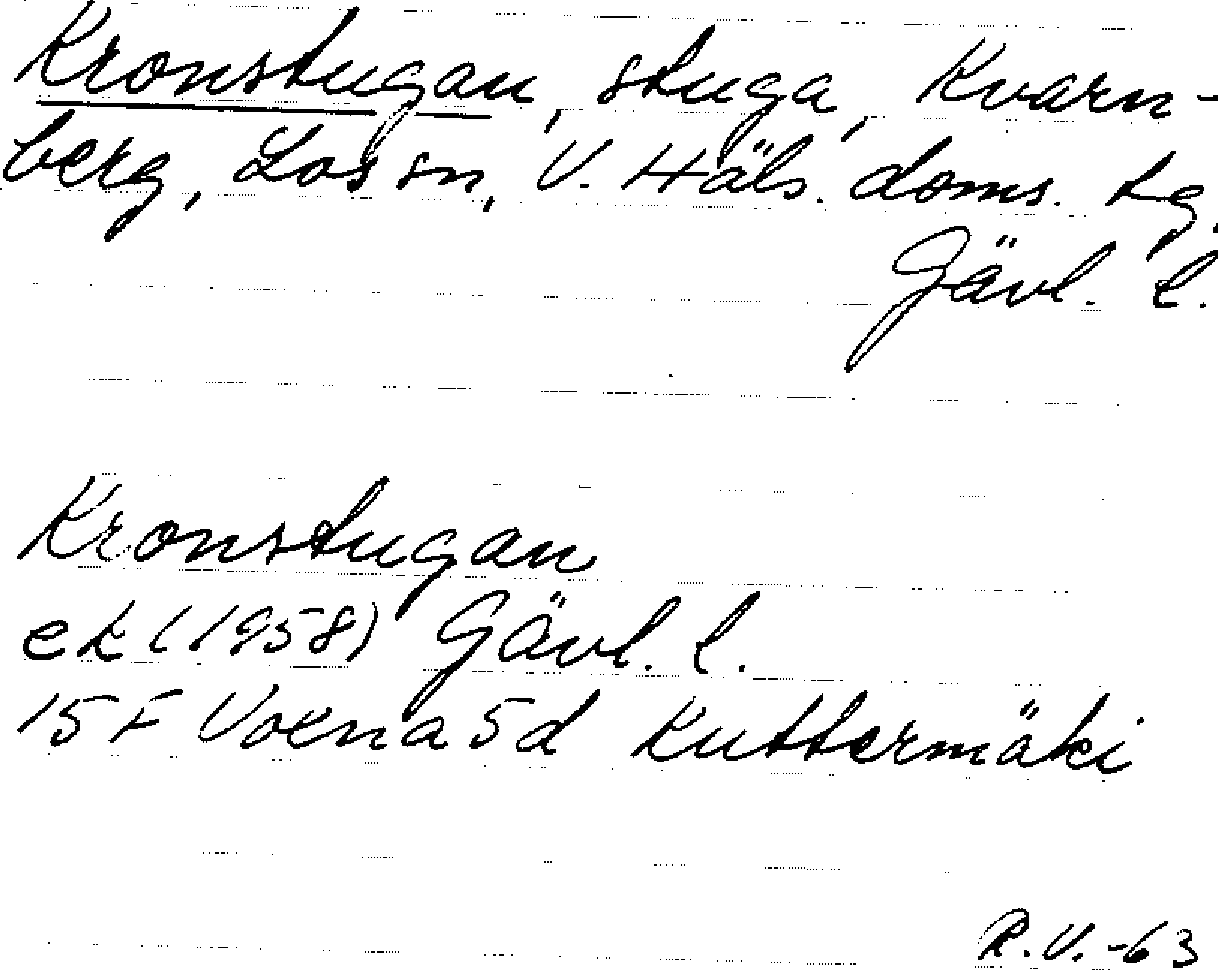 Kronstugan, stuga, Kvarn-
berg, Los sn, V. Häls. doms. tg.
Gävl. l.
Kronstugan
ek (1958) Gävl. l.
15 F Voxna 5d Kuttermäki
R.V.-63